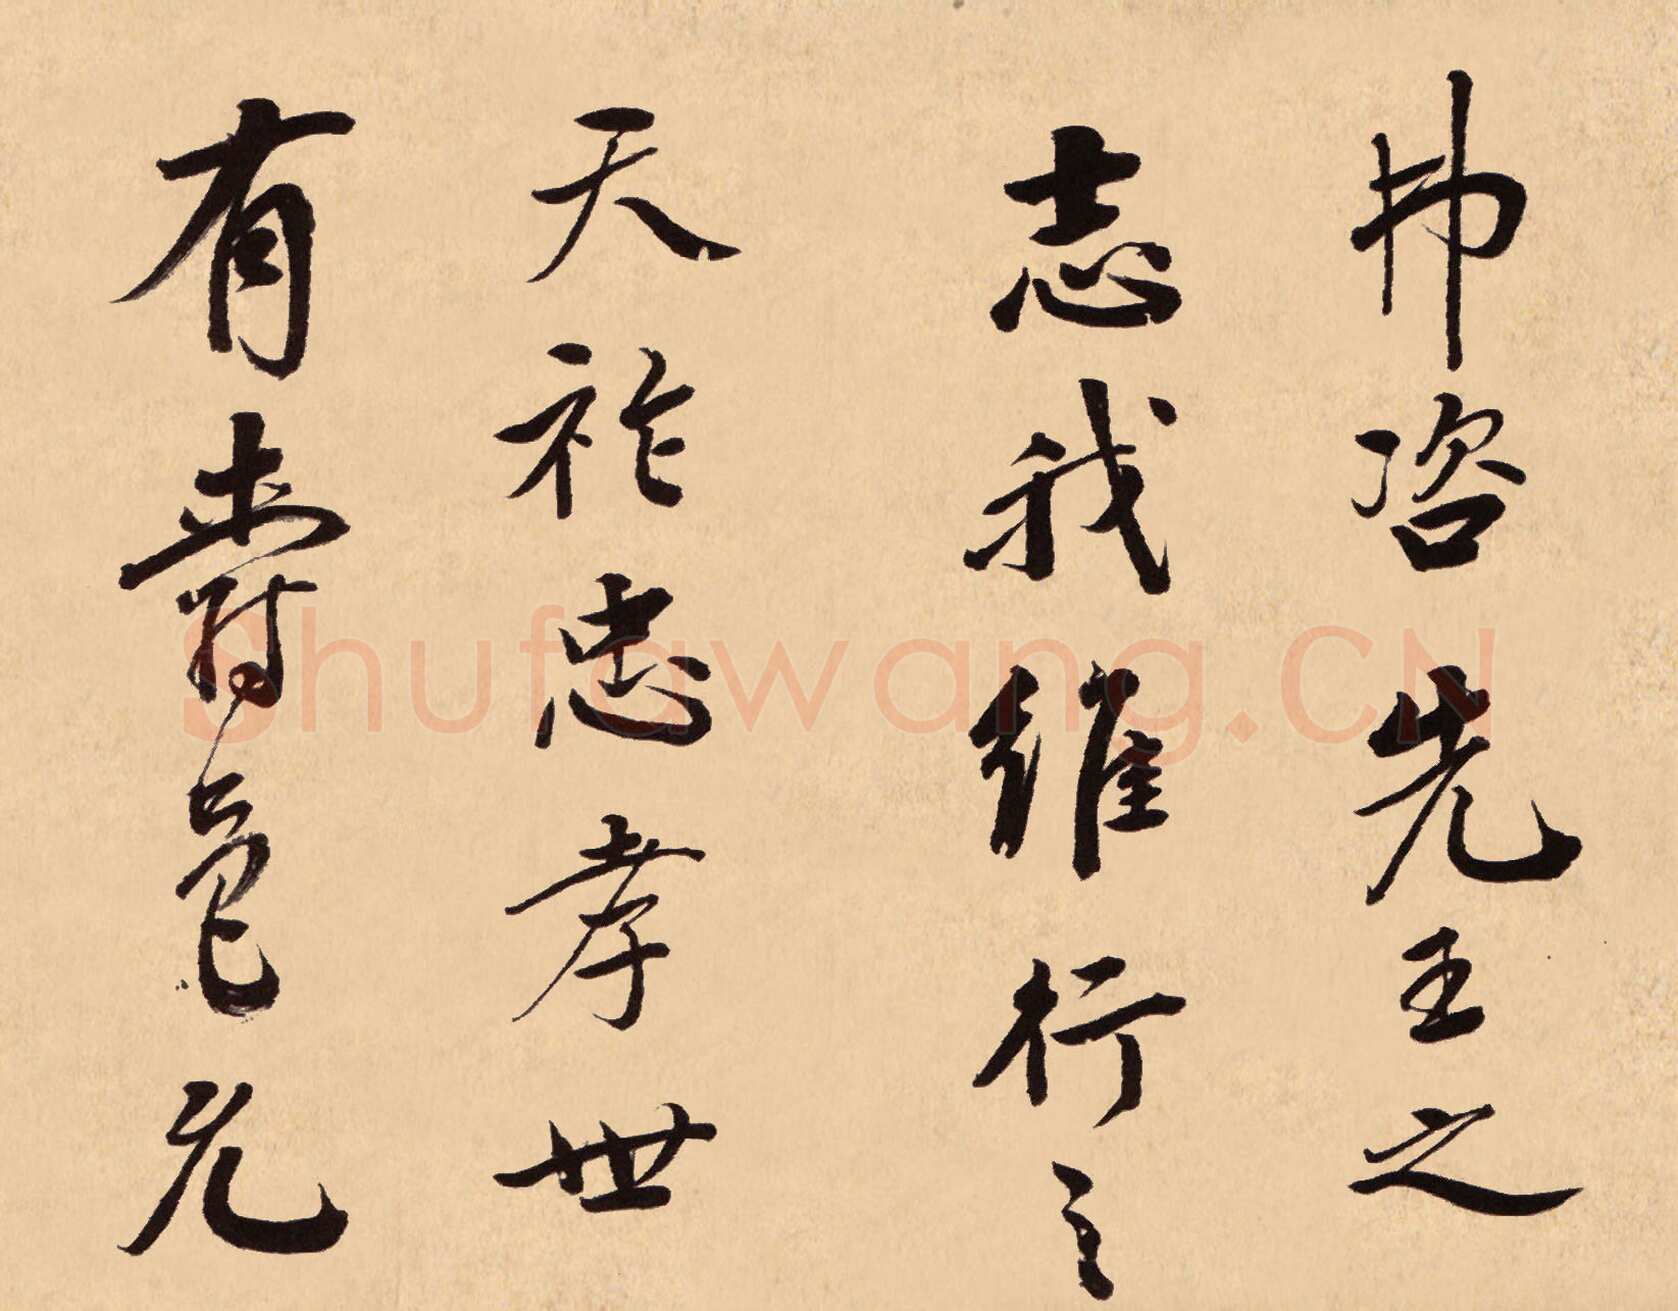 弗咨先王之
志我維行之
天祚忠孝世
有爵邑允
Shufawang.CN